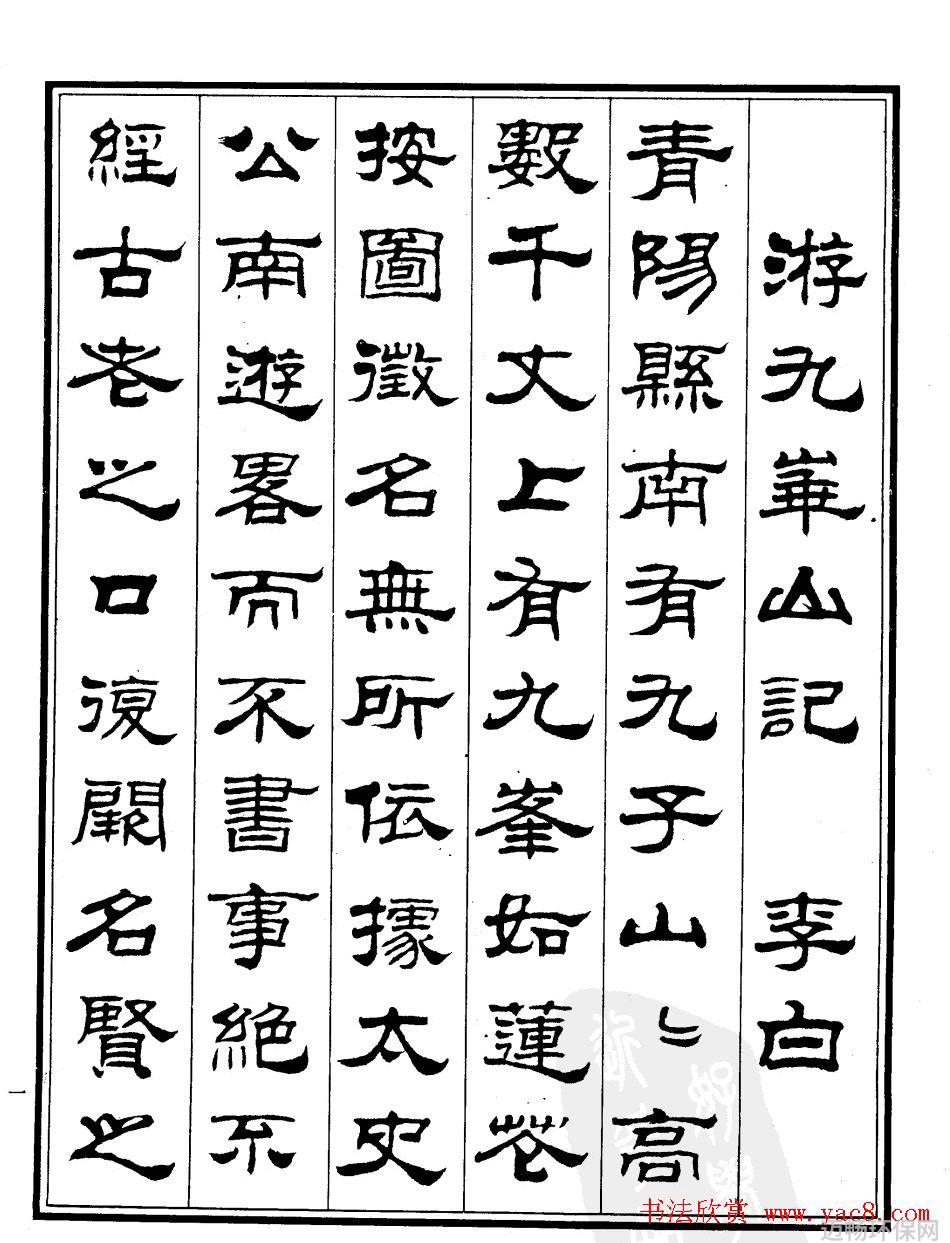 游九華山記 李白
青陽縣南有九子山〻高
數千丈上有九峯如蓮花
按圖徵名無所依據太史
公南遊畧而不書事絕不
經古老之口復闕名賢之
一
书法欣赏 www.yac8.com
迈畅环保网